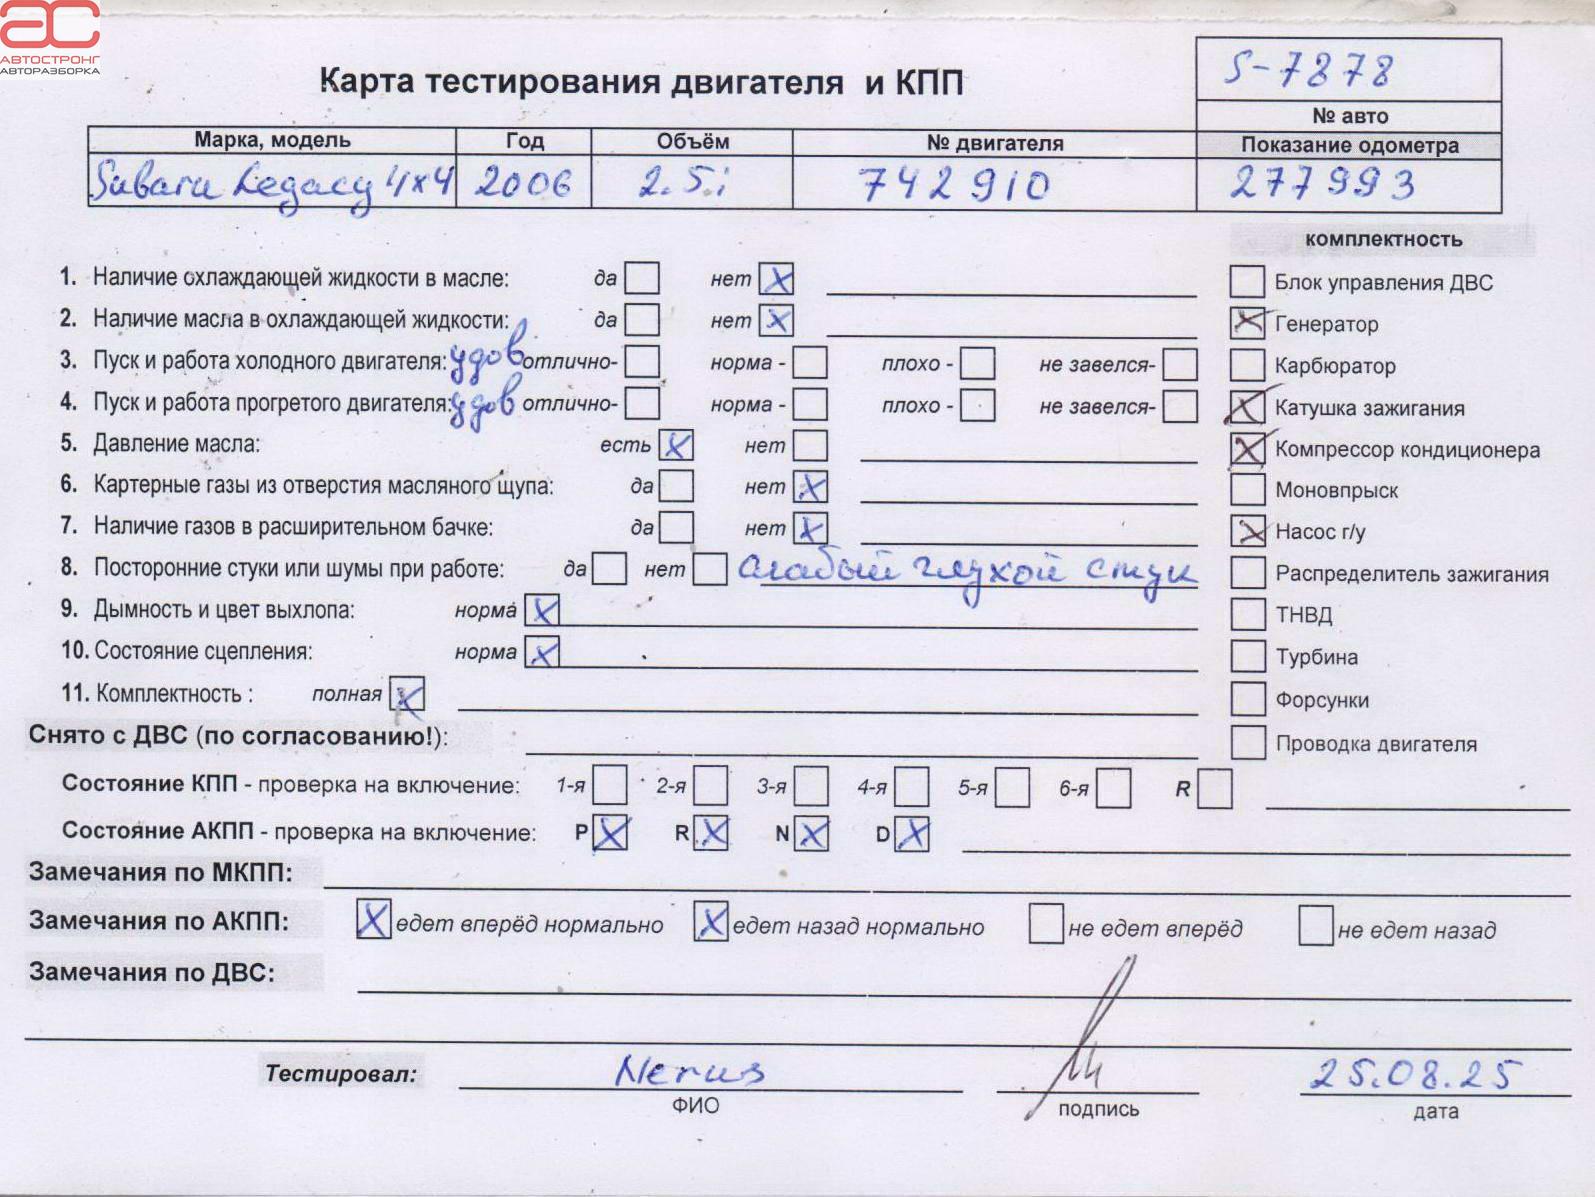 АВТОСТРОНГ
АВТОРАЗБОРКА
Карта тестирования двигателя и КПП
S-7878
№ авто
Марка, модель Год Объём № двигателя Показание одометра
Subaru Legacy 4x4 2006 2.5i 742910 277993
комплектность
1. Наличие охлаждающей жидкости в масле: да нет X
Блок управления ДВС
2. Наличие масла в охлаждающей жидкости: да нет X
X Генератор
3. Пуск и работа холодного двигателя: удов отлично- норма - плохо - не завелся-
Карбюратор
4. Пуск и работа прогретого двигателя: удов отлично- норма - плохо - не завелся-
X Катушка зажигания
5. Давление масла: есть X нет
X Компрессор кондиционера
6. Картерные газы из отверстия масляного щупа: да нет X
Моновпрыск
7. Наличие газов в расширительном бачке: да нет X
X Насос г/у
8. Посторонние стуки или шумы при работе: да нет слабый глухой стук
Распределитель зажигания
9. Дымность и цвет выхлопа: норма X
ТНВД
10. Состояние сцепления: норма X
Турбина
11. Комплектность : полная X
Форсунки
Снято с ДВС (по согласованию!):
Проводка двигателя
Состояние КПП - проверка на включение: 1-я 2-я 3-я 4-я 5-я 6-я R
Состояние АКПП - проверка на включение: P X R X N X D X
Замечания по МКПП:
Замечания по АКПП: X едет вперёд нормально X едет назад нормально не едет вперёд не едет назад
Замечания по ДВС:
Тестировал: 25.08.25
ФИО подпись дата